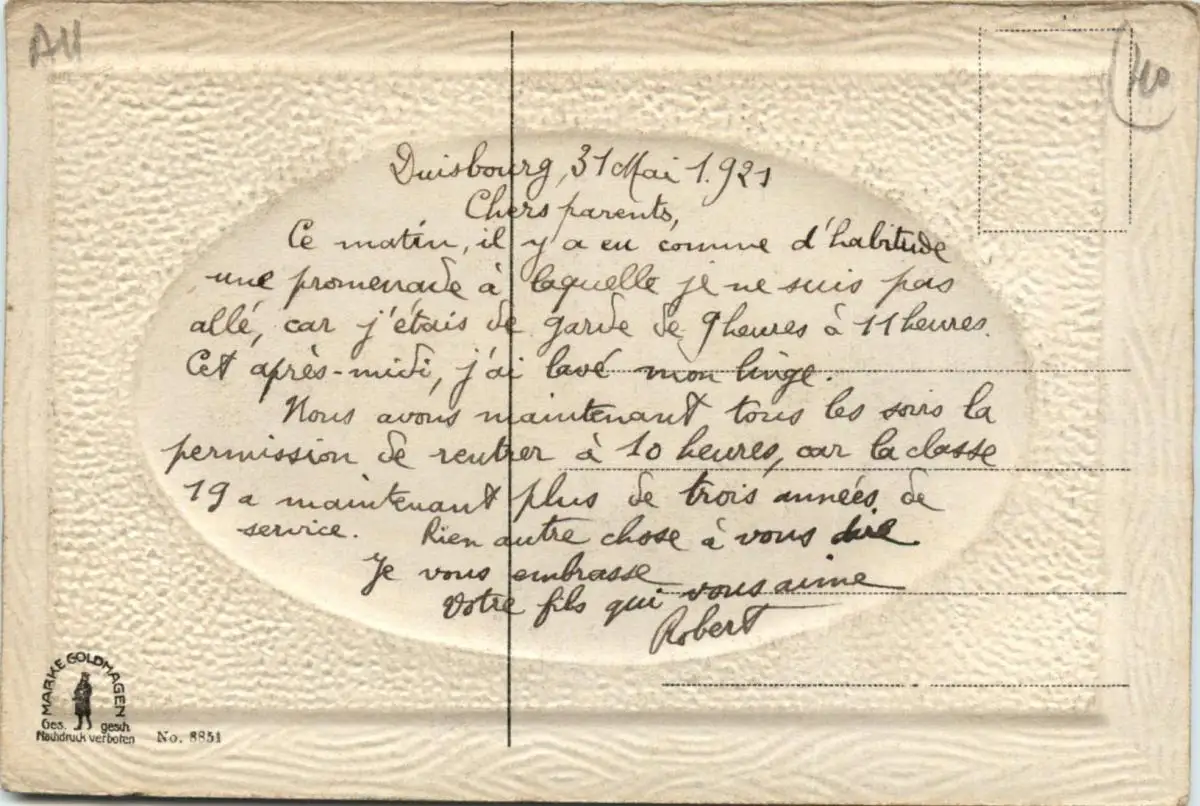 All
40
Duisbourg, 31 Mai 1.921
Chers parents,
Ce matin, il y a eu comme d'habitude
une promenade à laquelle je ne suis pas
allé, car j'étais de garde de 9 heures à 11 heures.
Cet après-midi, j'ai lavé mon linge.
Nous avons maintenant tous les soirs la
permission de rentrer à 10 heures, car la classe
19 a maintenant plus de trois années de
service. Rien autre chose à vous dire.
Je vous embrasse
Votre fils qui vous aime
Robert
MARKE GOLDHAGEN
Ges. gesch.
Nachdruck verboten No. 8851